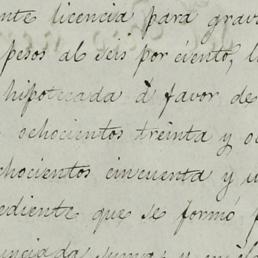 nte licencia para grav
pesos al seis por ciento, l
hipotecada á favor de
ochocientos treinta y o
chocientos cincuenta y u
ediente que se formó